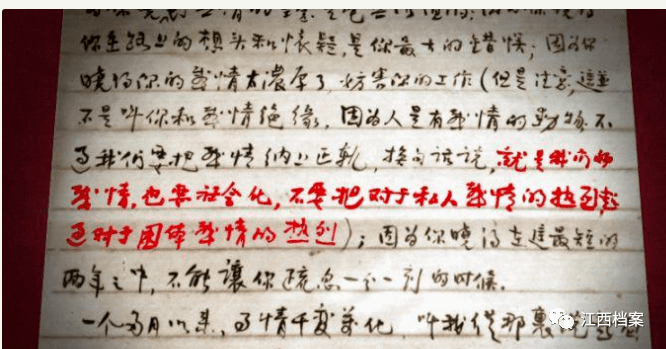 上的想头和怀疑,是你最大的错误;因为你
晓得你的感情太濃厚了,妨害你的工作(但是注意,這並
不是叫你和感情絶缘,因为人是有感情的動物,不
过我们要把感情纳上正轨,换句话说,就是我们的
感情,也要社会化,不要把对于私人感情的热烈超
过对于团体感情的热烈);因为你晓得在這最短的
两年之中,不能讓你疏忽一分一刻的时候。
一个多月以来,事情千变万化,叫我從那裏说
江西档案